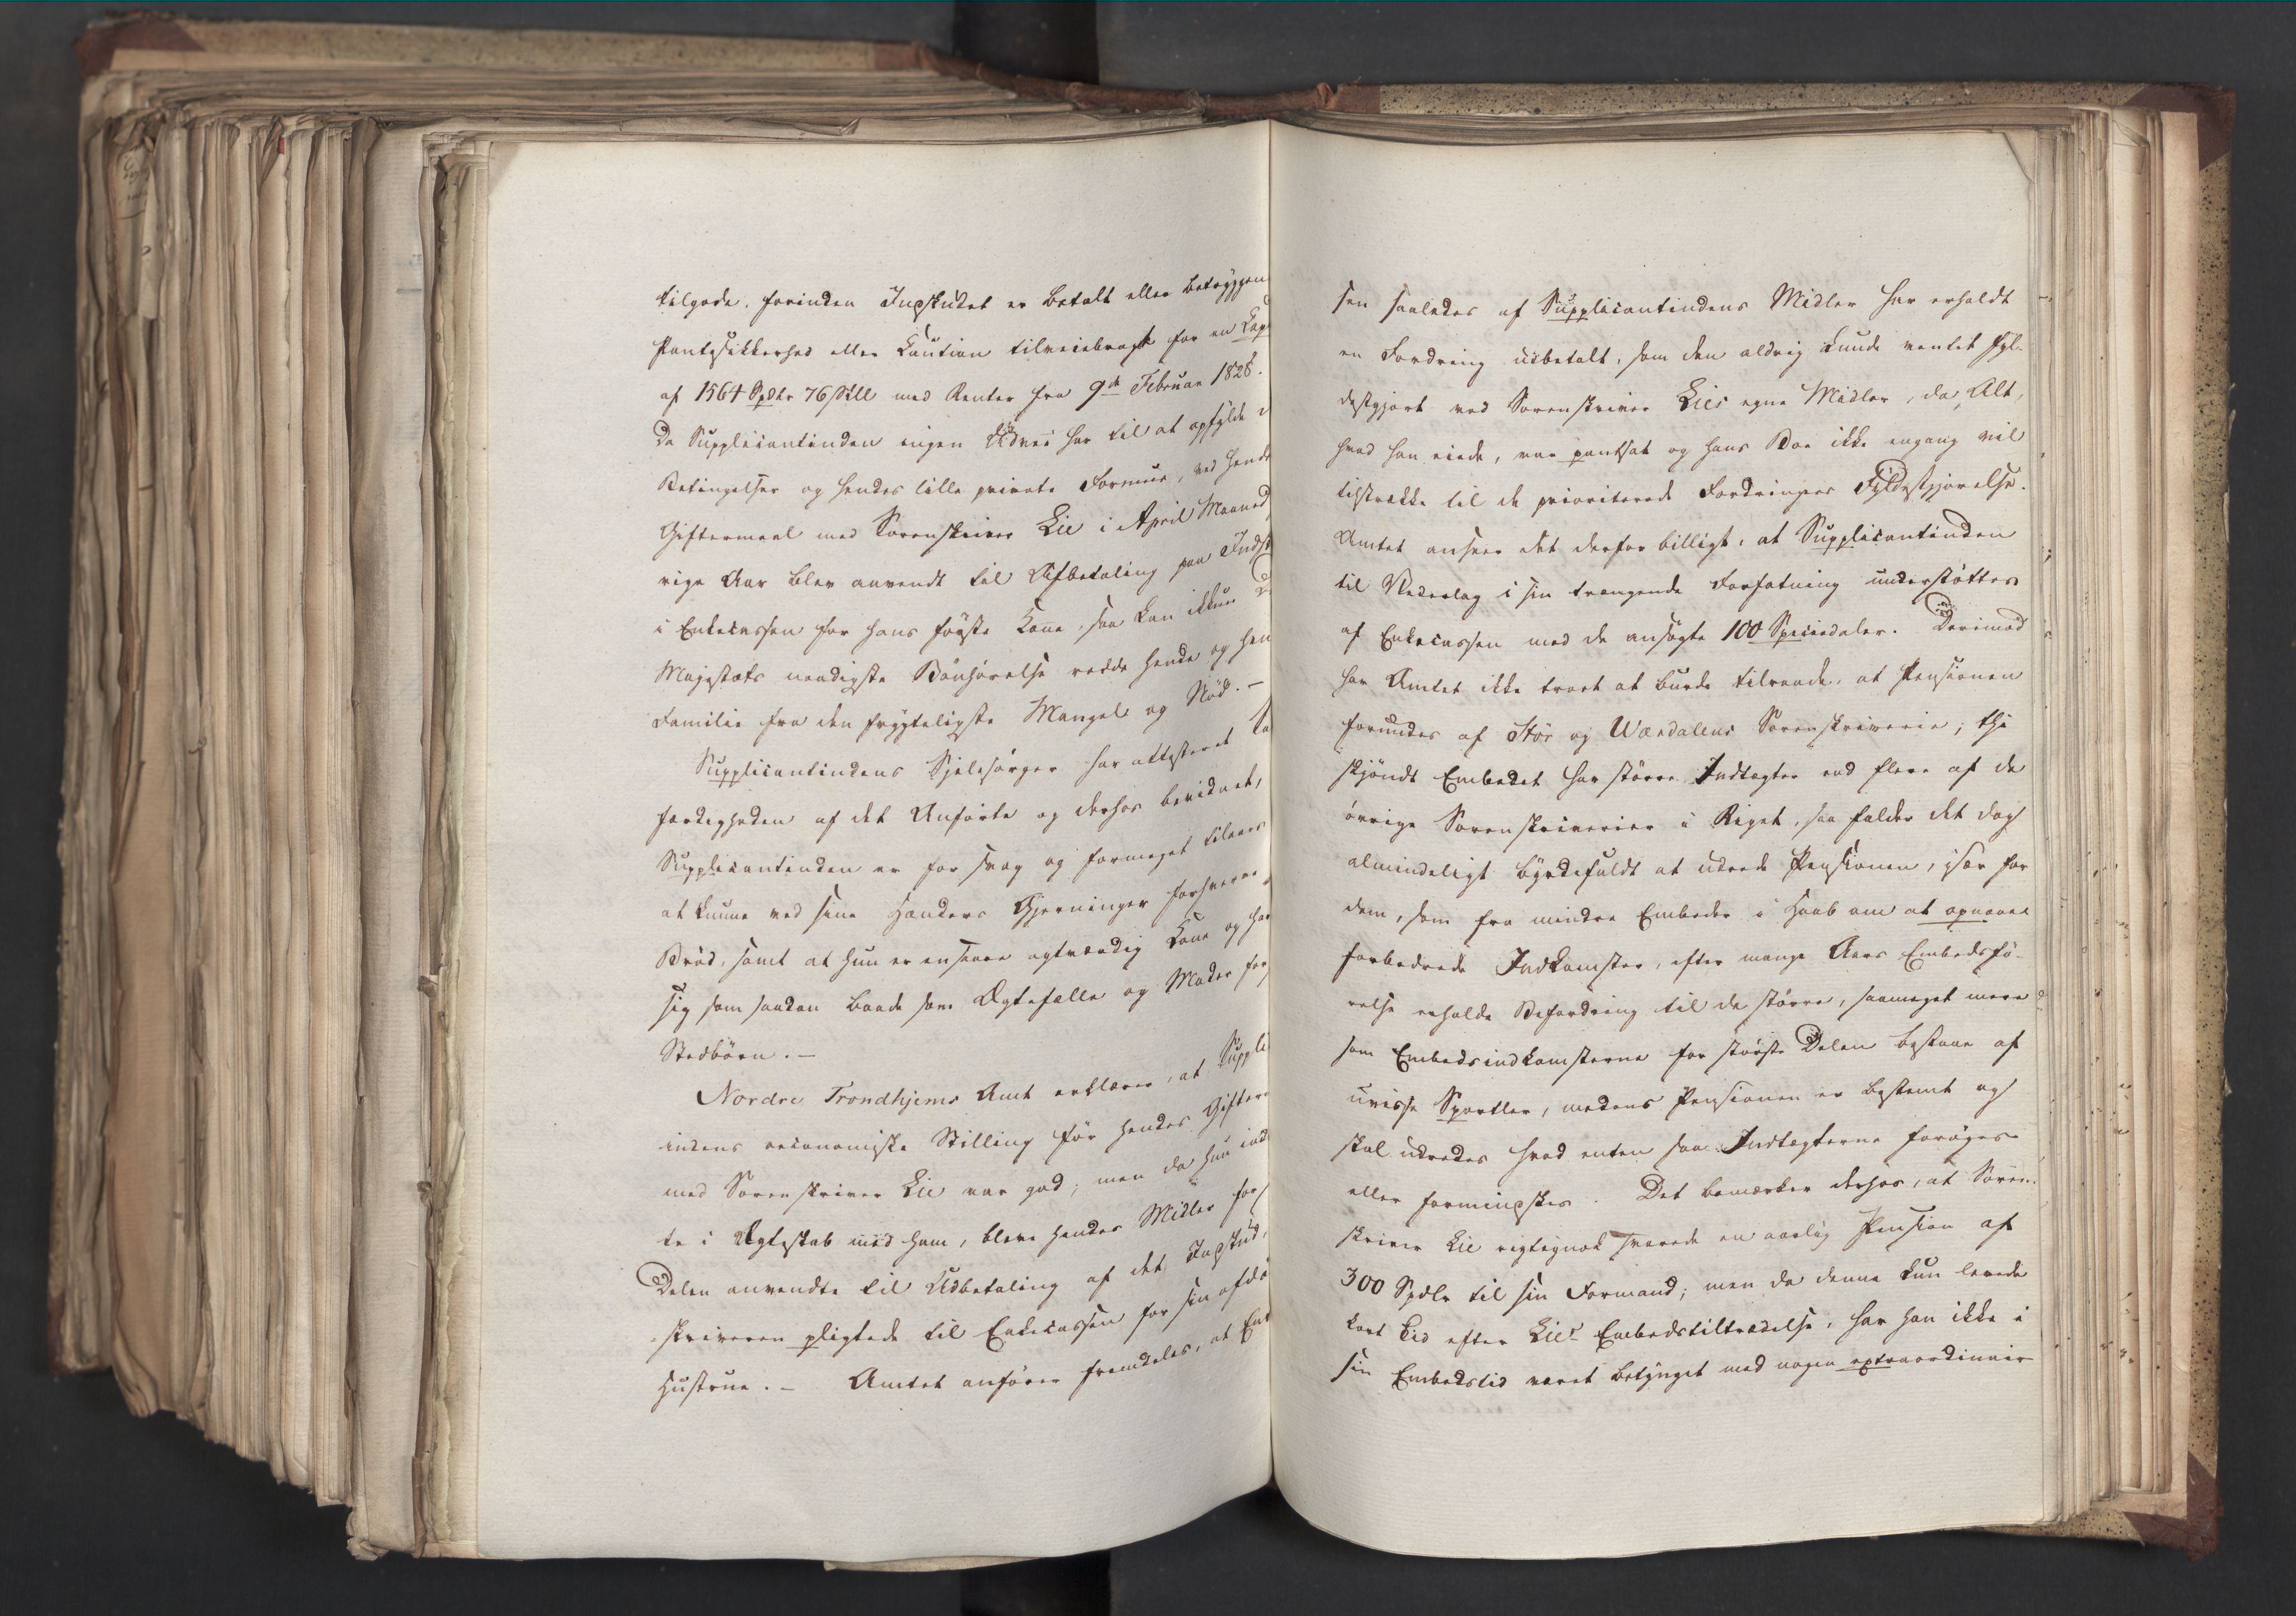 tilgode, forinden Inpskudet er betalt eller betryggen
Pantesikkerhed eller Caution tilveiebragt for en Cap
af 1564 Spdlr 76 skill med Renter fra 9de Februar 1828.
Da Supplicantinden ingen Udvei har til at opfylde
Betingelser og hendes lille private Formue, ved hendes
Giftermaal med Sorenskriver Lie i April Maaned
rige Aar blev anvendt til Afbetaling paa Indsk
i Enkecassen for hans første Kone, saa kan ikkun D
Majestæts naadigste Bønhørelse redde hende og hen
Familie fra den frygteligste Mangel og Nød. —
Supplicantindens Sjelesørger har attesteret
færdigheden af det Anførte og derhos bevidnet,
Supplicantinden er for svag og formeget tilaars
at kunne ved sine Hænders Gjerninger forhverve
Brød, samt at hun er en saare agtværdig Kone og har
sig som saadan baade som Ægtefælle og Moder for
Stedbørn. —
Nordre Trondhjems Amt erklærer, at Suppli
indens oeconomiske Stilling før hendes Gifter
med Sorenskriver Lie var god; men da hun ind
te i Ægteskab med ham, bleve hendes Midler for
Delen anvendte til Udbetaling af det Inpskud,
skriveren pligtede til Enkecassen for sin afdø
Hustrue. — Amtet anfører fremdeles, at Enk
sen saaledes af Supplicantindens Midler har erholdt
en Fordring udbetalt, som den aldrig kunde ventet fyl-
destgjort ved Sorenskriver Lies egne Midler, da Alt,
hvad han eiede, var pantsat og hans Boe ikke engang vil
tilstrække til de prioriterede Fordringers Fyldestgjørelse.
Amtet anseer det derfor billigt, at Supplicantinden
til Vederlag i sin trængende Forfatning understøttes
af Enkecassen med de ansøgte 100 Speciedaler. Derimod
har Amtet ikke troet at burde tilraade, at Pensionen
forundes af Stør og Værdalens Sorenskriverie; thi
skjøndt Embedet har større Indtægter end flere af de
øvrige Sorenskriverier i Riget, saa falder det dog
almindeligt byrdefuldt at udrede Pensionen, især for
dem, som fra mindre Embeder i Haab om at opnaae
forbedrede Indkomster, efter mange Aars Embedsfø-
relse erholde Befordring til de større, saameget mere
som Embedsindkomsterne for største Delen bestaae af
uvisse Sportler, medens Pensionen er bestemt og
skal udredes hvad enten saa Indtægterne forøges
eller forminpskes. Det bemærker derhos, at Soren-
skriver Lie rigtignok svarede en aarlig Pension af
300 Spdlr til sin Formand; men da denne kun levede
kort Tid efter Lies Embedstiltrædelse, har han ikke i
sin Embedstid været betynget med nogen extraordinair